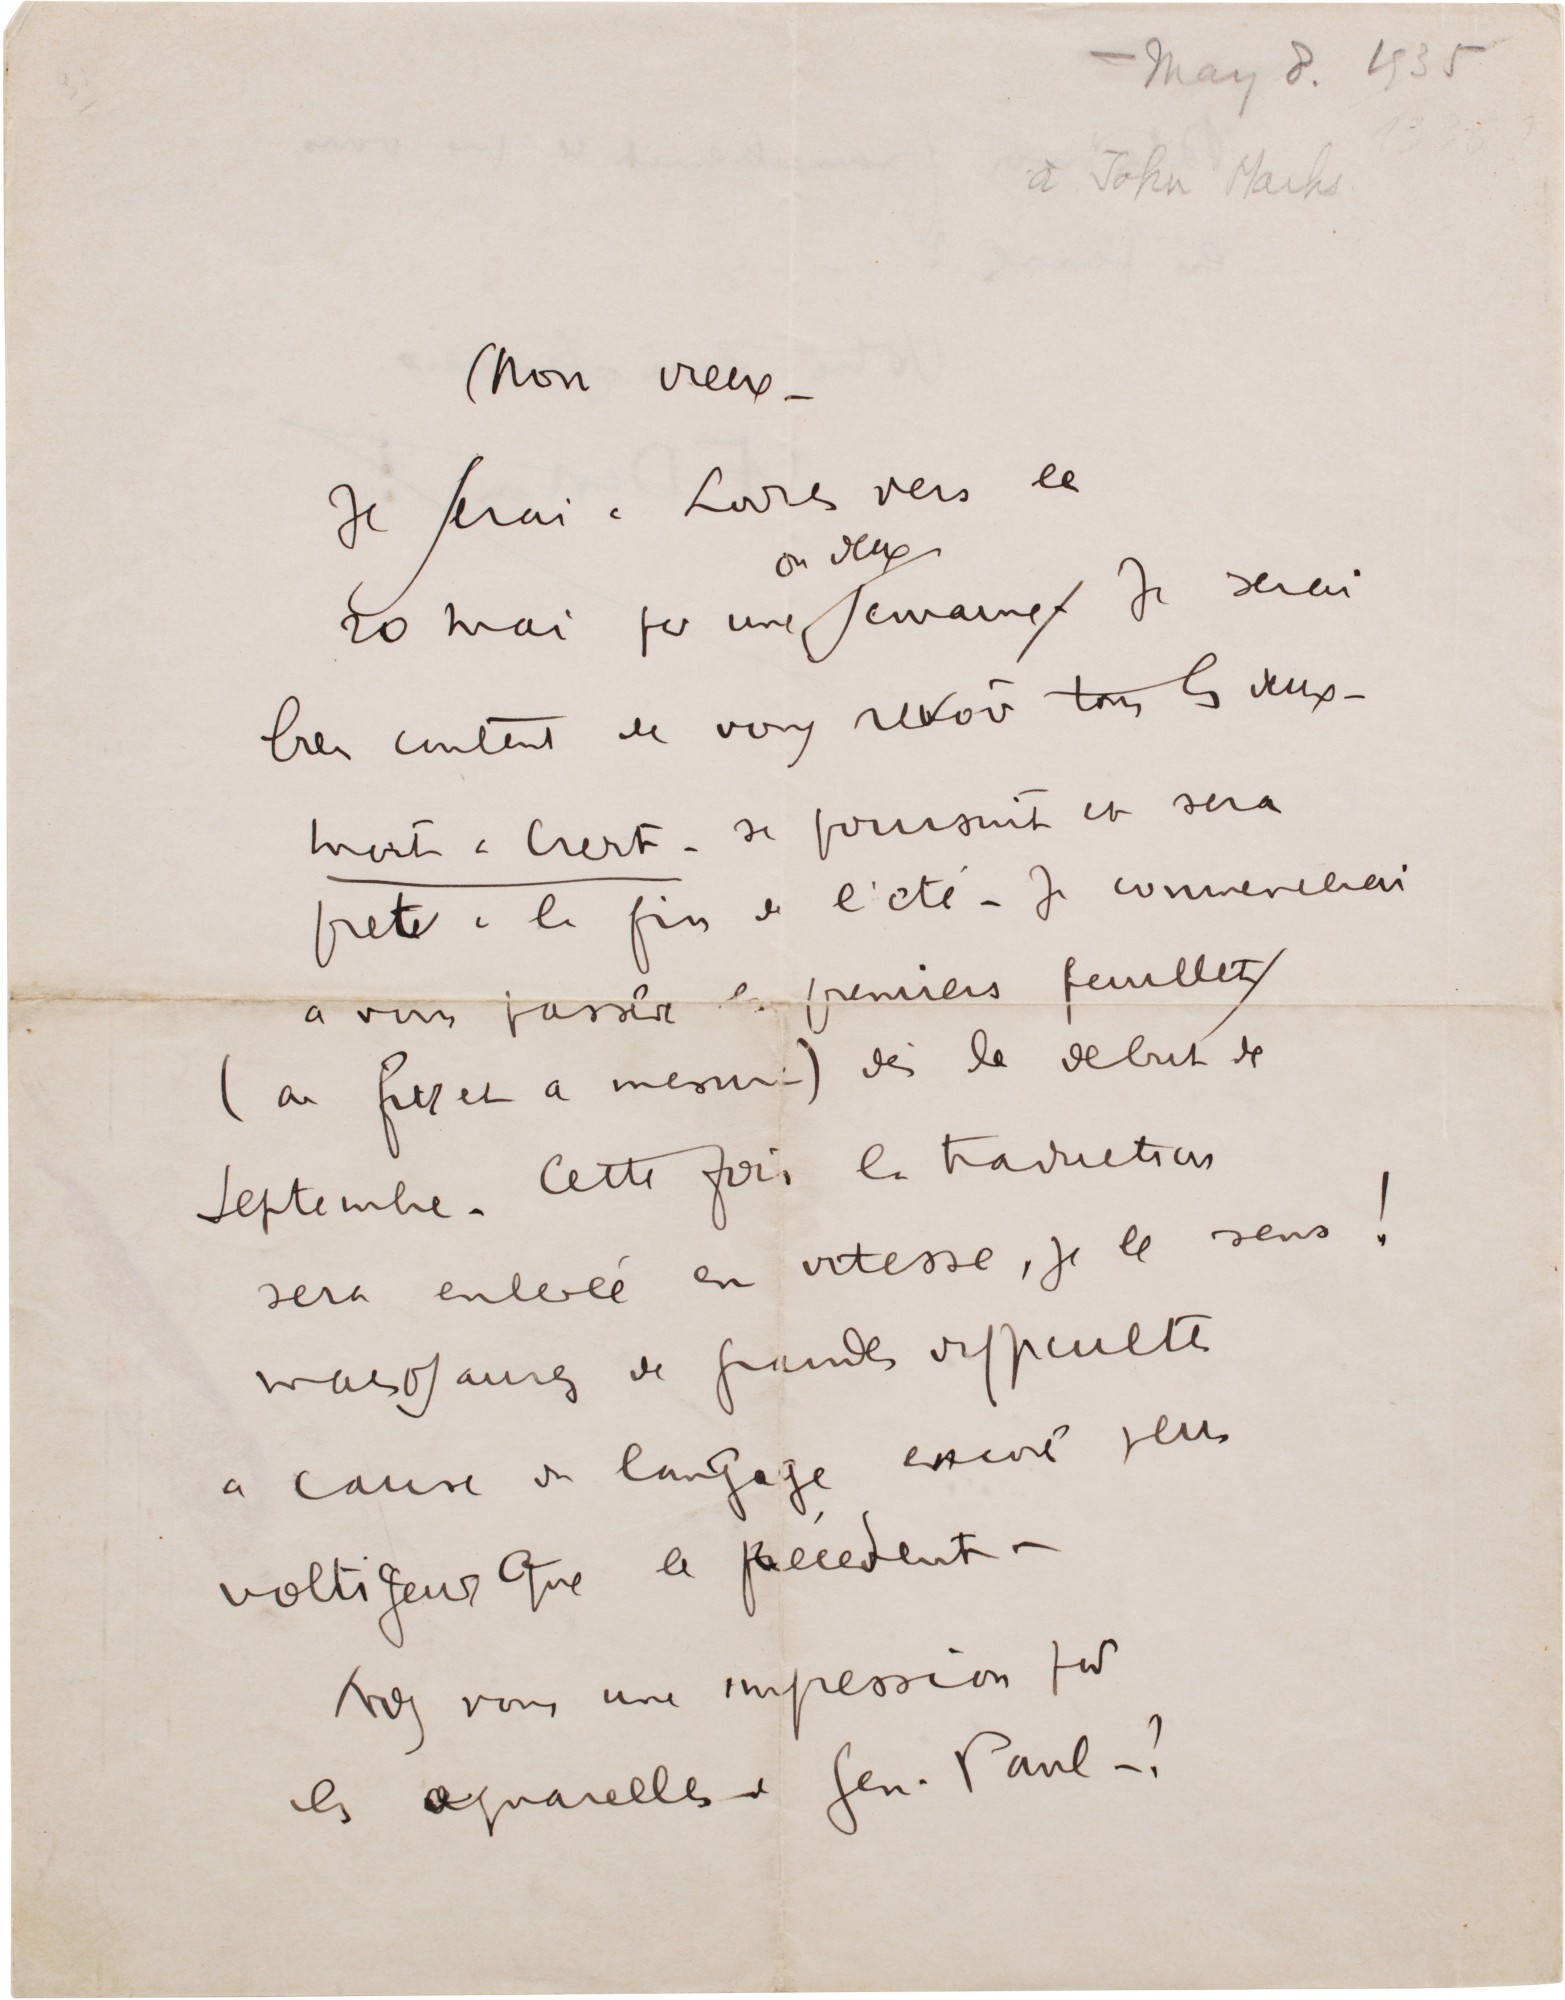 — May 8. 1935
1936 ?
à John Marks
Mon vieux —
Je serai à Londres vers le
ou deux
20 mai pr une semaines Je serai
bien content de vous revoir tous les deux —
Mort à Crédit — se poursuit et sera
prete à la fin de l'été — Je commencerai
a vous passer les premiers feuillets
( au fur et a mesure ) dès le debut de
Septembre — Cette fois la traduction
sera enlevée en vitesse, je le sens !
mais j'aurez de grandes difficultés
a cause du langage encore plus
voltigeur que le précédent —
Avez vous une impression pour
les aquarelles de Gen. Paul — ?